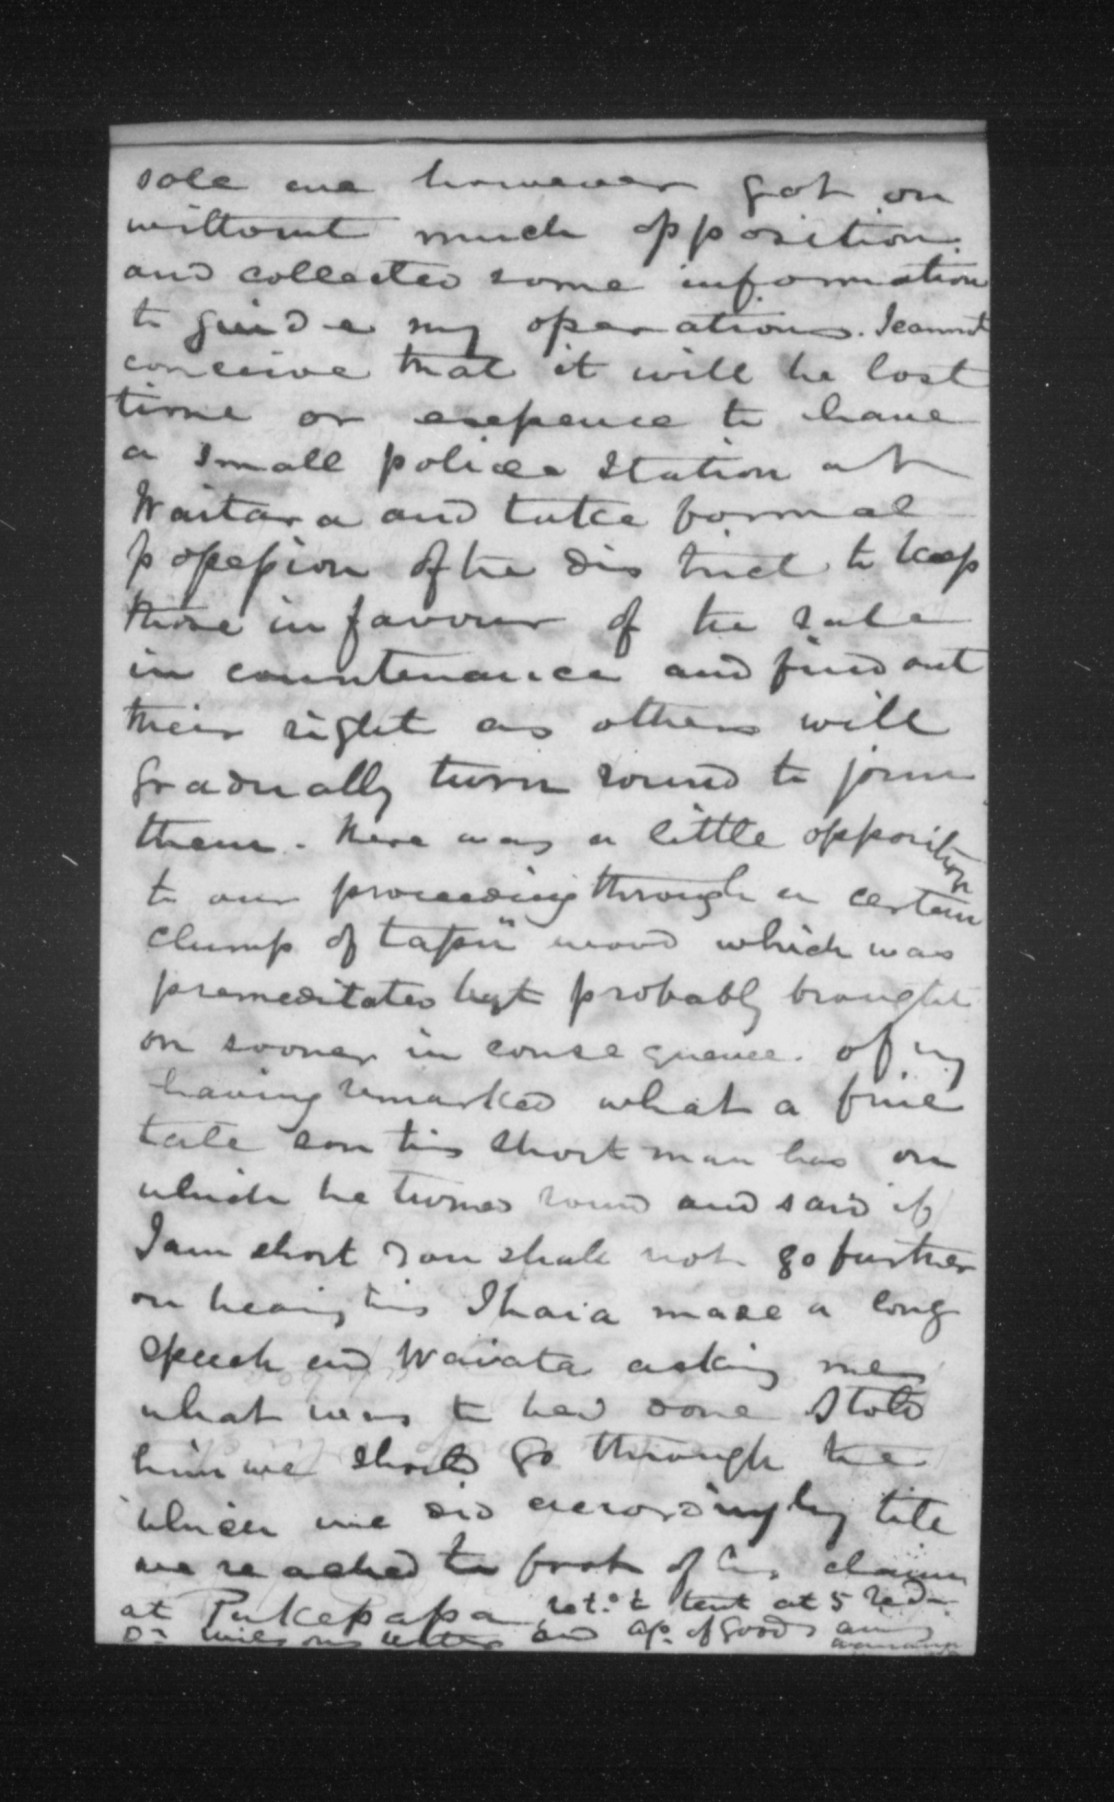 sale we however got on
without much opposition
and collected some information
to guide my operations. I cannot
conceive that it will be lost
time or expence to have
a small police station at
Waitara and take formal
possession of the district to keep
those in favour of the sale
in countenance and find out
their right as others will
gradually turn round to join
them. There was a little opposition
to our proceeding through a certain
clump of "tapu" wood which was
premeditated but probably brought
on sooner in consequence of my
having remarked what a fine
tall son this short man has on
which he turned round and said if
I am short you shall not go further
on hearing this Ihaia made a long
speech and Waiata asking me
what was to be done I told
him we should go through the
which we did accordingly till
we reached the foot of his claim
at Pukepapa ret.d to tent at 5 Red.
Dr Wilsons letter and of goods